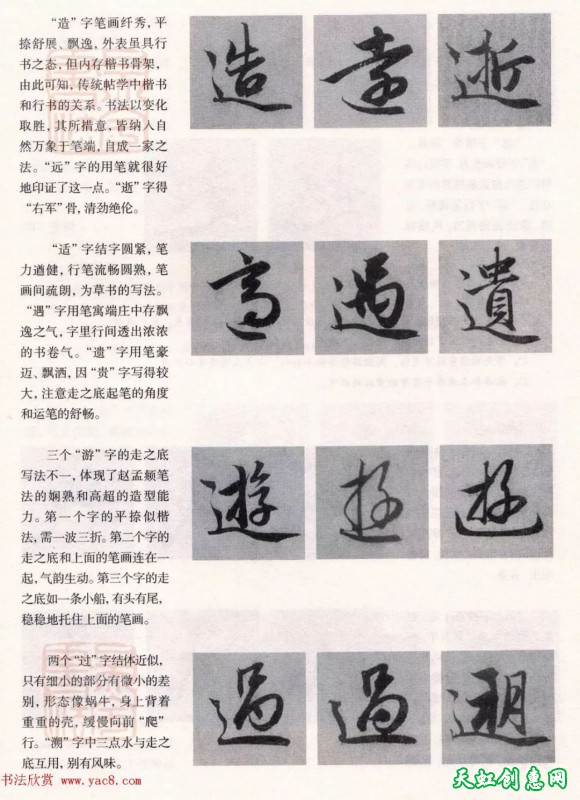 “造”字笔画纤秀，平
捺舒展、飘逸，外表虽具行
书之态，但内存楷书骨架，
由此可知，传统帖学中楷书
和行书的关系。书法以变化
取胜，其所措意，皆纳入自
然万象于笔端，自成一家之
法。“远”字的用笔就很好
地印证了这一点。“逝”字得
“右军”骨，清劲绝伦。
造 遠 逝
“适”字结字圆紧，笔
力遒健，行笔流畅圆熟，笔
画间疏朗，为草书的写法。
“遇”字用笔寓端庄中存飘
逸之气，字里行间透出浓浓
的书卷气。“遗”字用笔豪
迈、飘洒，因“贵”字写得较
大，注意走之底起笔的角度
和运笔的舒畅。
適 遇 遺
三个“游”字的走之底
写法不一，体现了赵孟頫笔
法的娴熟和高超的造型能
力。第一个字的平捺似楷
法，需一波三折。第二个字的
走之底和上面的笔画连在一
起，气韵生动。第三个字的走
之底如一条小船，有头有尾，
稳稳地托住上面的笔画。
遊 遊 遊
两个“过”字结体近似，
只有细小的部分有微小的差
别，形态像蜗牛，身上背着
重重的壳，缓慢向前“爬”
行。“溯”字中三点水与走之
底互用，别有风味。
過 過 遡
书法欣赏 www.yac8.com
天虹创意网